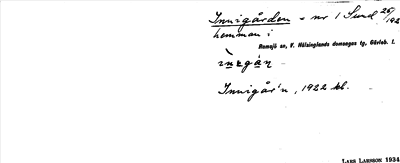 Innigården = nr 1 Sund 26/192
hemman i
Ramsjö sn, V. Hälsinglands domsagas tg, Gävleb. l.
Innigår'n, 1922 kl.
LARS LARSSON 1934